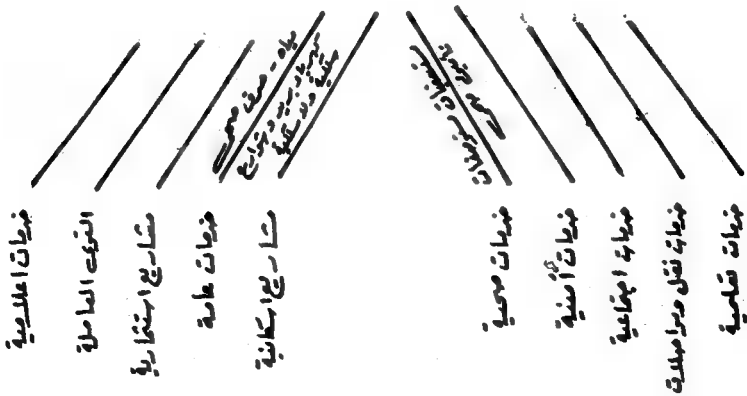 خدمات تعليمية
خدمات نقل ومواصلات
خدمات اجتماعية
خدمات أمنية
خدمات صحية
مستشفيات مستوصفات
مشاريع اسكانية
خدمات عامة
مياه - صرف صحي
مشاريع استثمارية
القوى العاملة
خدمات اعلامية